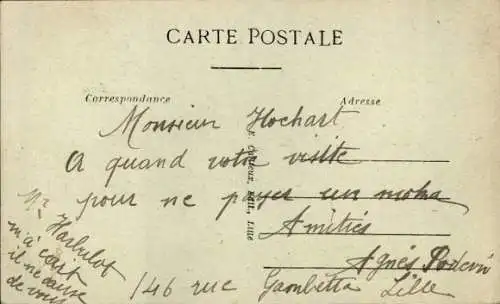 CARTE POSTALE
Correspondance
Adresse
Monsieur Hochart
A quand votre visite
pour ne payer un moka
Amitiés
Agnès
146 rue Gambetta Lille
Mr Harbulot
m'a écrit
il me cause
de vous
Édit., Lille